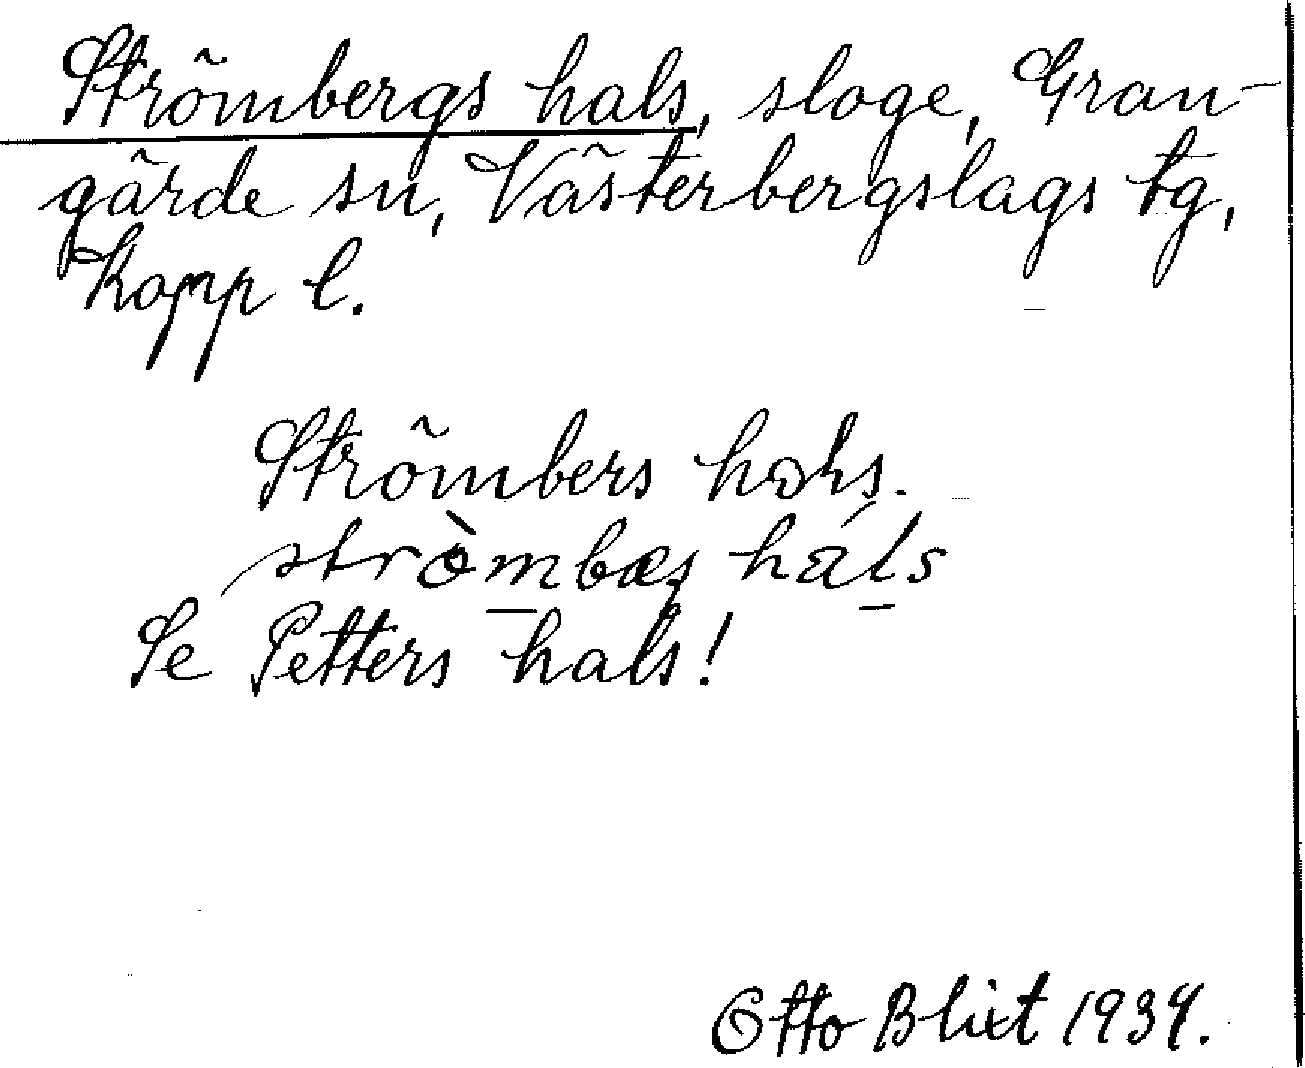 Strömbergs hals, sloge, Gran-
gärde sn, Västerbergslags tg,
Kopp l.
Strömbers hals.
stròmbæṣ háls
Se Petters hals!
Otto Blixt 1934.